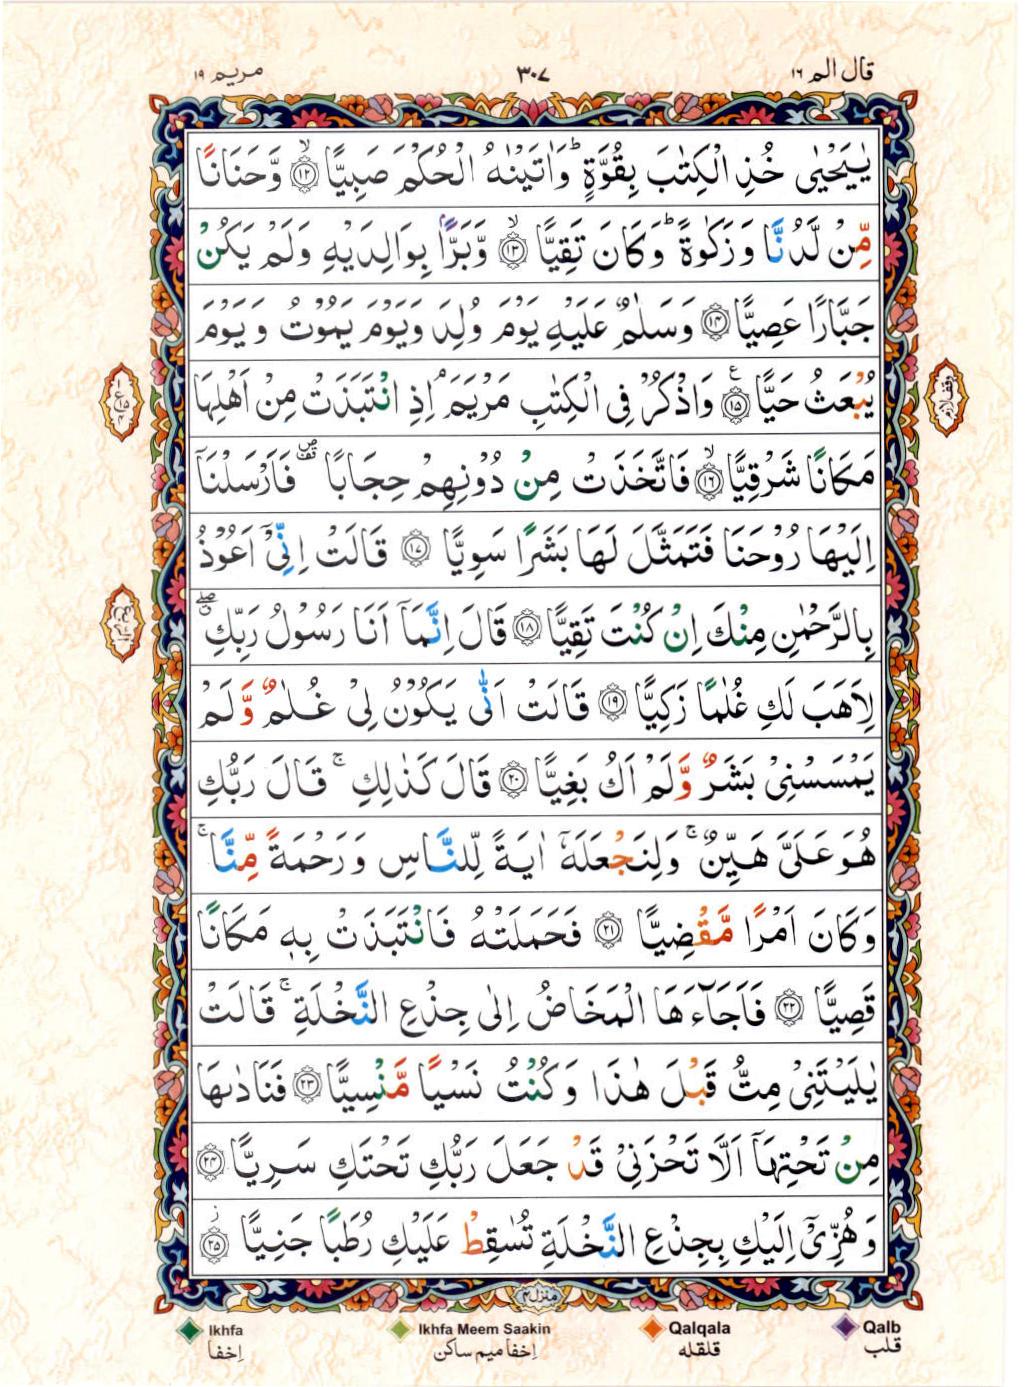 قال الم ١٦
٣٠٧
مريم ١٩
يٰيَحْيٰى خُذِ الْكِتٰبَ بِقُوَّةٍ ؕ وَاٰتَيْنٰهُ الْحُكْمَ صَبِيًّا ۙ‏﴿۱۲﴾ وَّحَنَانًا
مِّنْ لَّدُنَّا وَزَكٰوةً ؕ وَكَانَ تَقِيًّا ۙ‏﴿۱۳﴾ وَّبَرًّۢا بِوَالِدَيْهِ وَلَمْ يَكُنْ
جَبَّارًا عَصِيًّا ﴿۱۴﴾ وَسَلٰمٌ عَلَيْهِ يَوْمَ وُلِدَ وَيَوْمَ يَمُوْتُ وَيَوْمَ
يُبْعَثُ حَيًّا ﴿۱۵﴾ وَاذْكُرْ فِى الْكِتٰبِ مَرْيَمَ ۘ اِذِ انْتَبَذَتْ مِنْ اَهْلِهَا
مَكَانًا شَرْقِيًّا ۙ‏﴿۱۶﴾ فَاتَّخَذَتْ مِنْ دُوْنِهِمْ حِجَابًا فَاَرْسَلْنَاۤ
اِلَيْهَا رُوْحَنَا فَتَمَثَّلَ لَهَا بَشَرًا سَوِيًّا ﴿۱۷﴾ قَالَتْ اِنِّىْۤ اَعُوْذُ
بِالرَّحْمٰنِ مِنْكَ اِنْ كُنْتَ تَقِيًّا ﴿۱۸﴾ قَالَ اِنَّمَاۤ اَنَا رَسُوْلُ رَبِّكِ ۖ
لِاَهَبَ لَكِ غُلٰمًا زَكِيًّا ﴿۱۹﴾ قَالَتْ اَنّٰى يَكُوْنُ لِىْ غُلٰمٌ وَّلَمْ
يَمْسَسْنِىْ بَشَرٌ وَّلَمْ اَكُ بَغِيًّا ﴿۲۰﴾ قَالَ كَذٰلِكِ ۚ قَالَ رَبُّكِ
هُوَ عَلَىَّ هَيِّنٌ ۚ وَلِنَجْعَلَهٗۤ اٰيَةً لِّلنَّاسِ وَرَحْمَةً مِّنَّا ۚ
وَكَانَ اَمْرًا مَّقْضِيًّا ﴿۲۱﴾ فَحَمَلَتْهُ فَانْتَبَذَتْ بِهٖ مَكَانًا
قَصِيًّا ﴿۲۲﴾ فَاَجَآءَهَا الْمَخَاضُ اِلٰى جِذْعِ النَّخْلَةِ ۚ قَالَتْ
يٰلَيْتَنِىْ مِتُّ قَبْلَ هٰذَا وَكُنْتُ نَسْيًا مَّنْسِيًّا ﴿۲۳﴾ فَنَادٰىهَا
مِنْ تَحْتِهَاۤ اَلَّا تَحْزَنِىْ قَدْ جَعَلَ رَبُّكِ تَحْتَكِ سَرِيًّا ﴿۲۴﴾
وَهُزِّىْۤ اِلَيْكِ بِجِذْعِ النَّخْلَةِ تُسٰقِطْ عَلَيْكِ رُطَبًا جَنِيًّا ﴿۲۵﴾
وقف لازم
الربع
منزل ۴
Ikhfa
Ikhfa Meem Saakin
Qalqala
Qalb
اِخفا
اِخفا ميم ساكن
قلقله
قلب